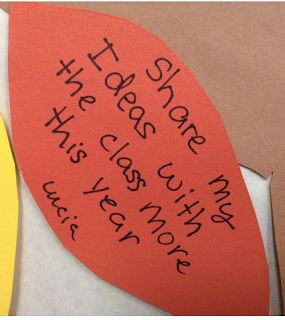 Share my
Ideas with
the class more
this year
Lucia